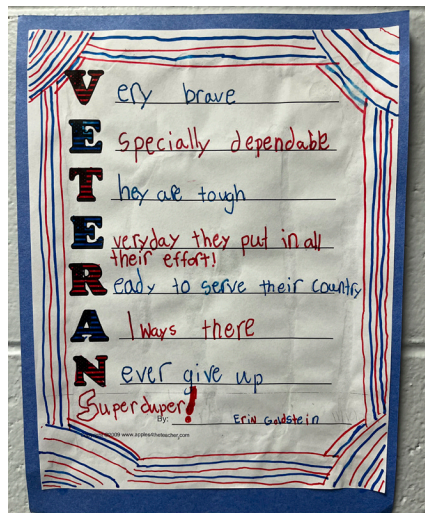 Very brave
Especially dependable
They are tough
Everyday they put in all
their effort!
Ready to serve their country
Always there
Never give up
Superduper!
By: Erin Goldstein
©2009 www.apples4theteacher.com